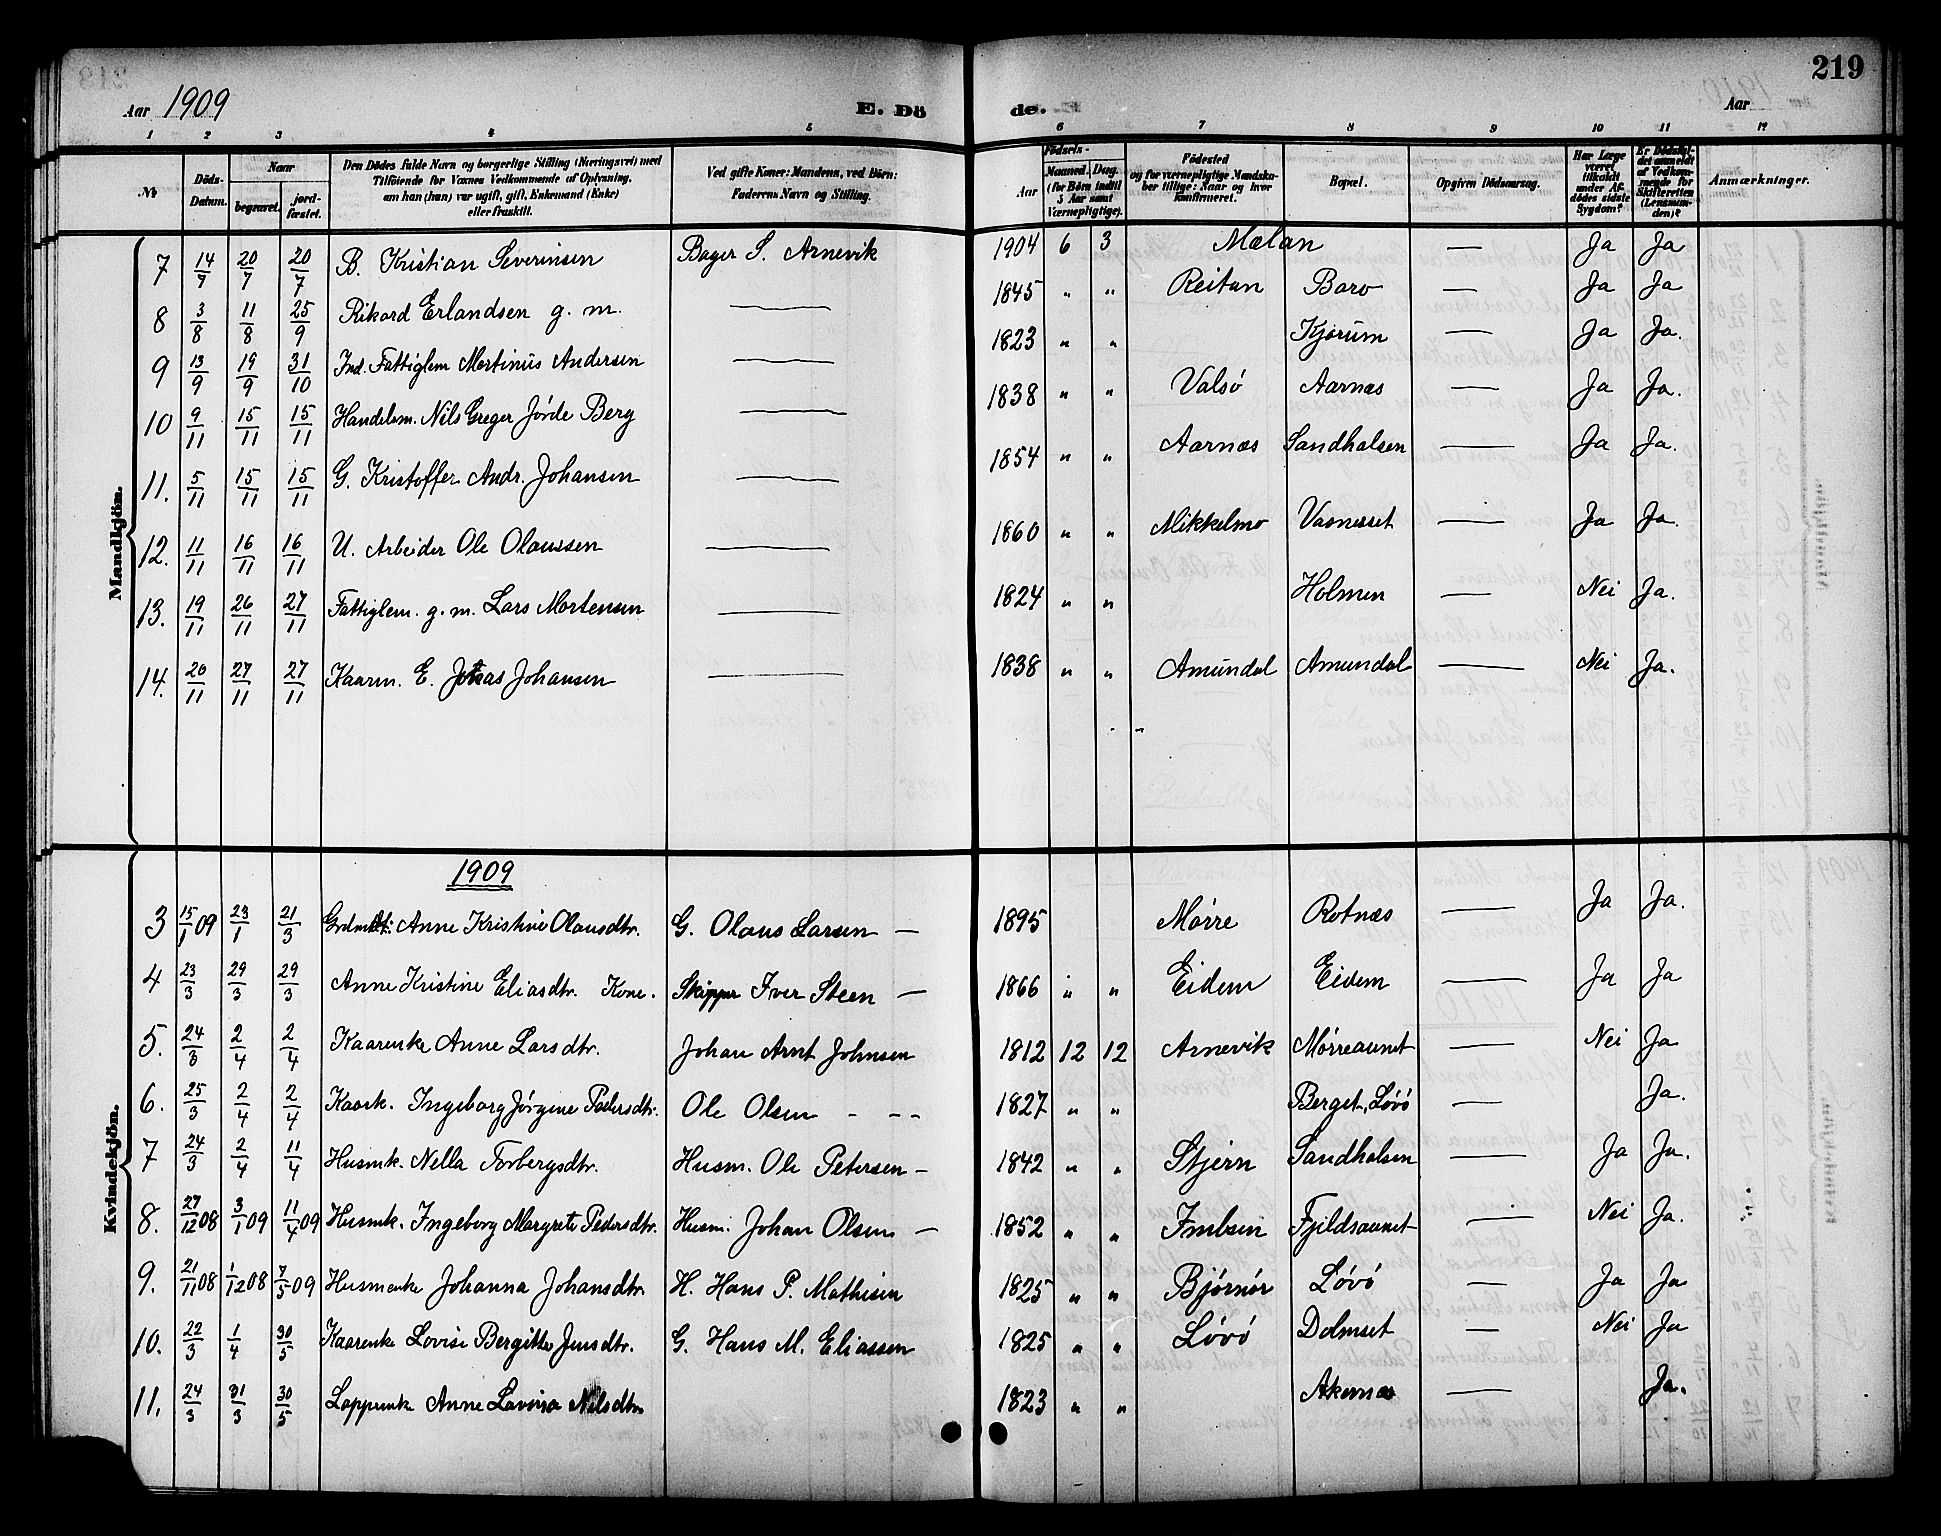 Aar 1909 E. Dö de. Aar 219
1 2 3 4 5 6 7 8 9 10 11 12
№ Döds-Datum. Naar begravet. jordfæstet. Den Dödes fulde Navn og borgerlige Stilling (Næringsvei) med Tilföiende for Voxnes Vedkommende af Oplysning, om han (hun) var ugift, gift, Enkemand (Enke) eller fraskilt. Ved gifte Koner: Mandens, ved Börn: Faderens Navn og Stilling. Födsels- Aar Maaned. Dag. (for Börn indtil 5 Aar samt Værnepligtige). Födested og for værnepligtige Mandskaber tillige: Naar og hvor konfirmeret. Bopæl. Opgiven Dödsaarsag. Har Læge været tilkaldt under Afdödes sidste Sygdom? Er Dödsfaldet anmeldt af Vedkommende for Skifteretten (Lensmanden)? Anmærkninger.
Mandkjön.
7 14/7 20/7 20/7 B. Kristian Severinsen Bager S. Arnevik 1904 6 3 Mælan — Ja Ja
8 3/8 11/8 25/9 Rikard Erlandsen g. m. — 1845 " " Reitan Baro — Ja Ja
9 13/9 19/9 31/10 Ind. Fattiglem Martinus Andersen — 1823 " " Kjørum — Ja Ja.
10 9/11 15/11 15/11 Handelsm. Nils Greger Jørde Berg — 1838 " " Valsø Aarnæs — Ja Ja.
11. 5/11 15/11 15/11 G. Kristoffer Andr. Johansen — 1854 " " Aarnæs Sandhalsen — Ja Ja.
12. 11/11 16/11 16/11 U. Arbeider Ole Olaussen — 1860 " " Mikkelmo Vasnesset — Ja Ja.
13. 19/11 26/11 27/11 Fattiglem. g. m. Lars Mortensen — 1824 " " Holmen — Nei Ja.
14. 20/11 27/11 27/11 Kaarm. E. Johansen — 1838 " " Amundal Amundal — Nei Ja.
1909
Kvindekjön.
3 15/1 09 23/1 21/3 Anne Kristine Olausdtr. G. Olaus Larsen — 1895 Mørre Rotnæs — Ja Ja.
4 23/3 29/3 29/3 Anne Kristine Eliasdtr. Kone. Skipper Iver Steen — 1866 " " Eidem Eidem — Ja Ja
5. 24/3 2/4 2/4 Kaarenke Anne Larsdtr. Johan Arnt Johnsen 1812 12 12 Arnevik Mørreaunet — Nei Ja
6. 25/3 2/4 2/4 Kaark. Ingeborg Jørgine Pedersdtr. Ole Olsen - - - 1827 " " Berget, Løvø — Ja.
7 24/3 2/4 11/4 Husmk. Nella Torbergsdtr. Husm. Ole Petersen — 1842 " " Stjern Sandhalsen — Ja Ja.
8. 27/12 08 3/1 09 11/4 09 Husmk. Ingeborg Margrete Pedersdtr. Husm. Johan Olsen — 1852 " " Imbsen Fjeldsaunet — Nei Ja.
9. 21/11 08 1/12 08 7/5 09 Husmenke Johanna Johansdtr H. Hans P. Mathisen 1825 " " Bjørnør Løvø — Ja Ja
10. 22/3 1/4 30/5 Kaarenke Lovise Bergitte Jensdtr. G. Hans M. Eliassen 1825 " " Løvø Dolmset — Nei Ja
11. 24/3 31/3 30/5 Lappenk Anne Lavina Nilsdtr 1823 " " Akernæs — Ja.